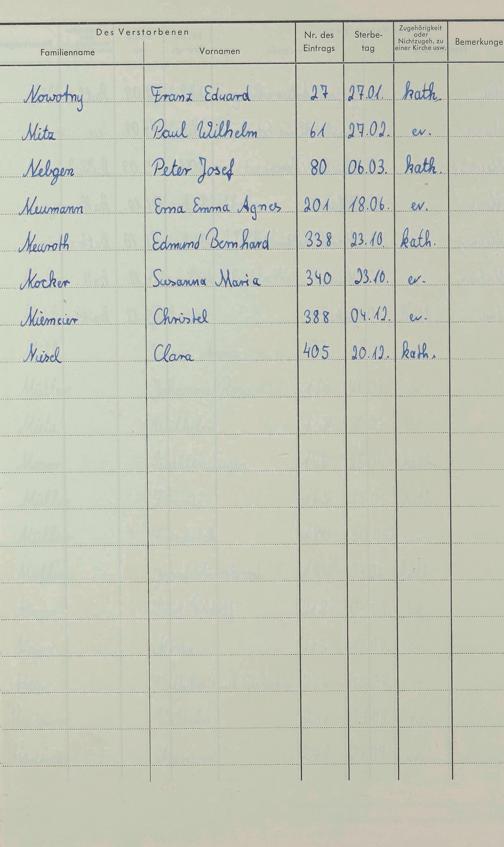 Des Verstorbenen
Familienname Vornamen Nr. des Eintrags Sterbe- tag Zugehörigkeit oder Nichtzugeh. zu einer Kirche usw. Bemerkunge
Nowotny Franz Eduard 27 27.01. kath.
Mitz Paul Wilhelm 61 27.02. ev.
Nebgen Peter Josef 80 06.03. kath.
Neumann Erna Emma Agnes 201 18.06. ev.
Neuroth Edmund Bernhard 338 23.10. kath.
Nocker Susanna Maria 340 23.10. ev.
Niemeier Christel 388 04.12. ev.
Clara 405 20.12. kath.